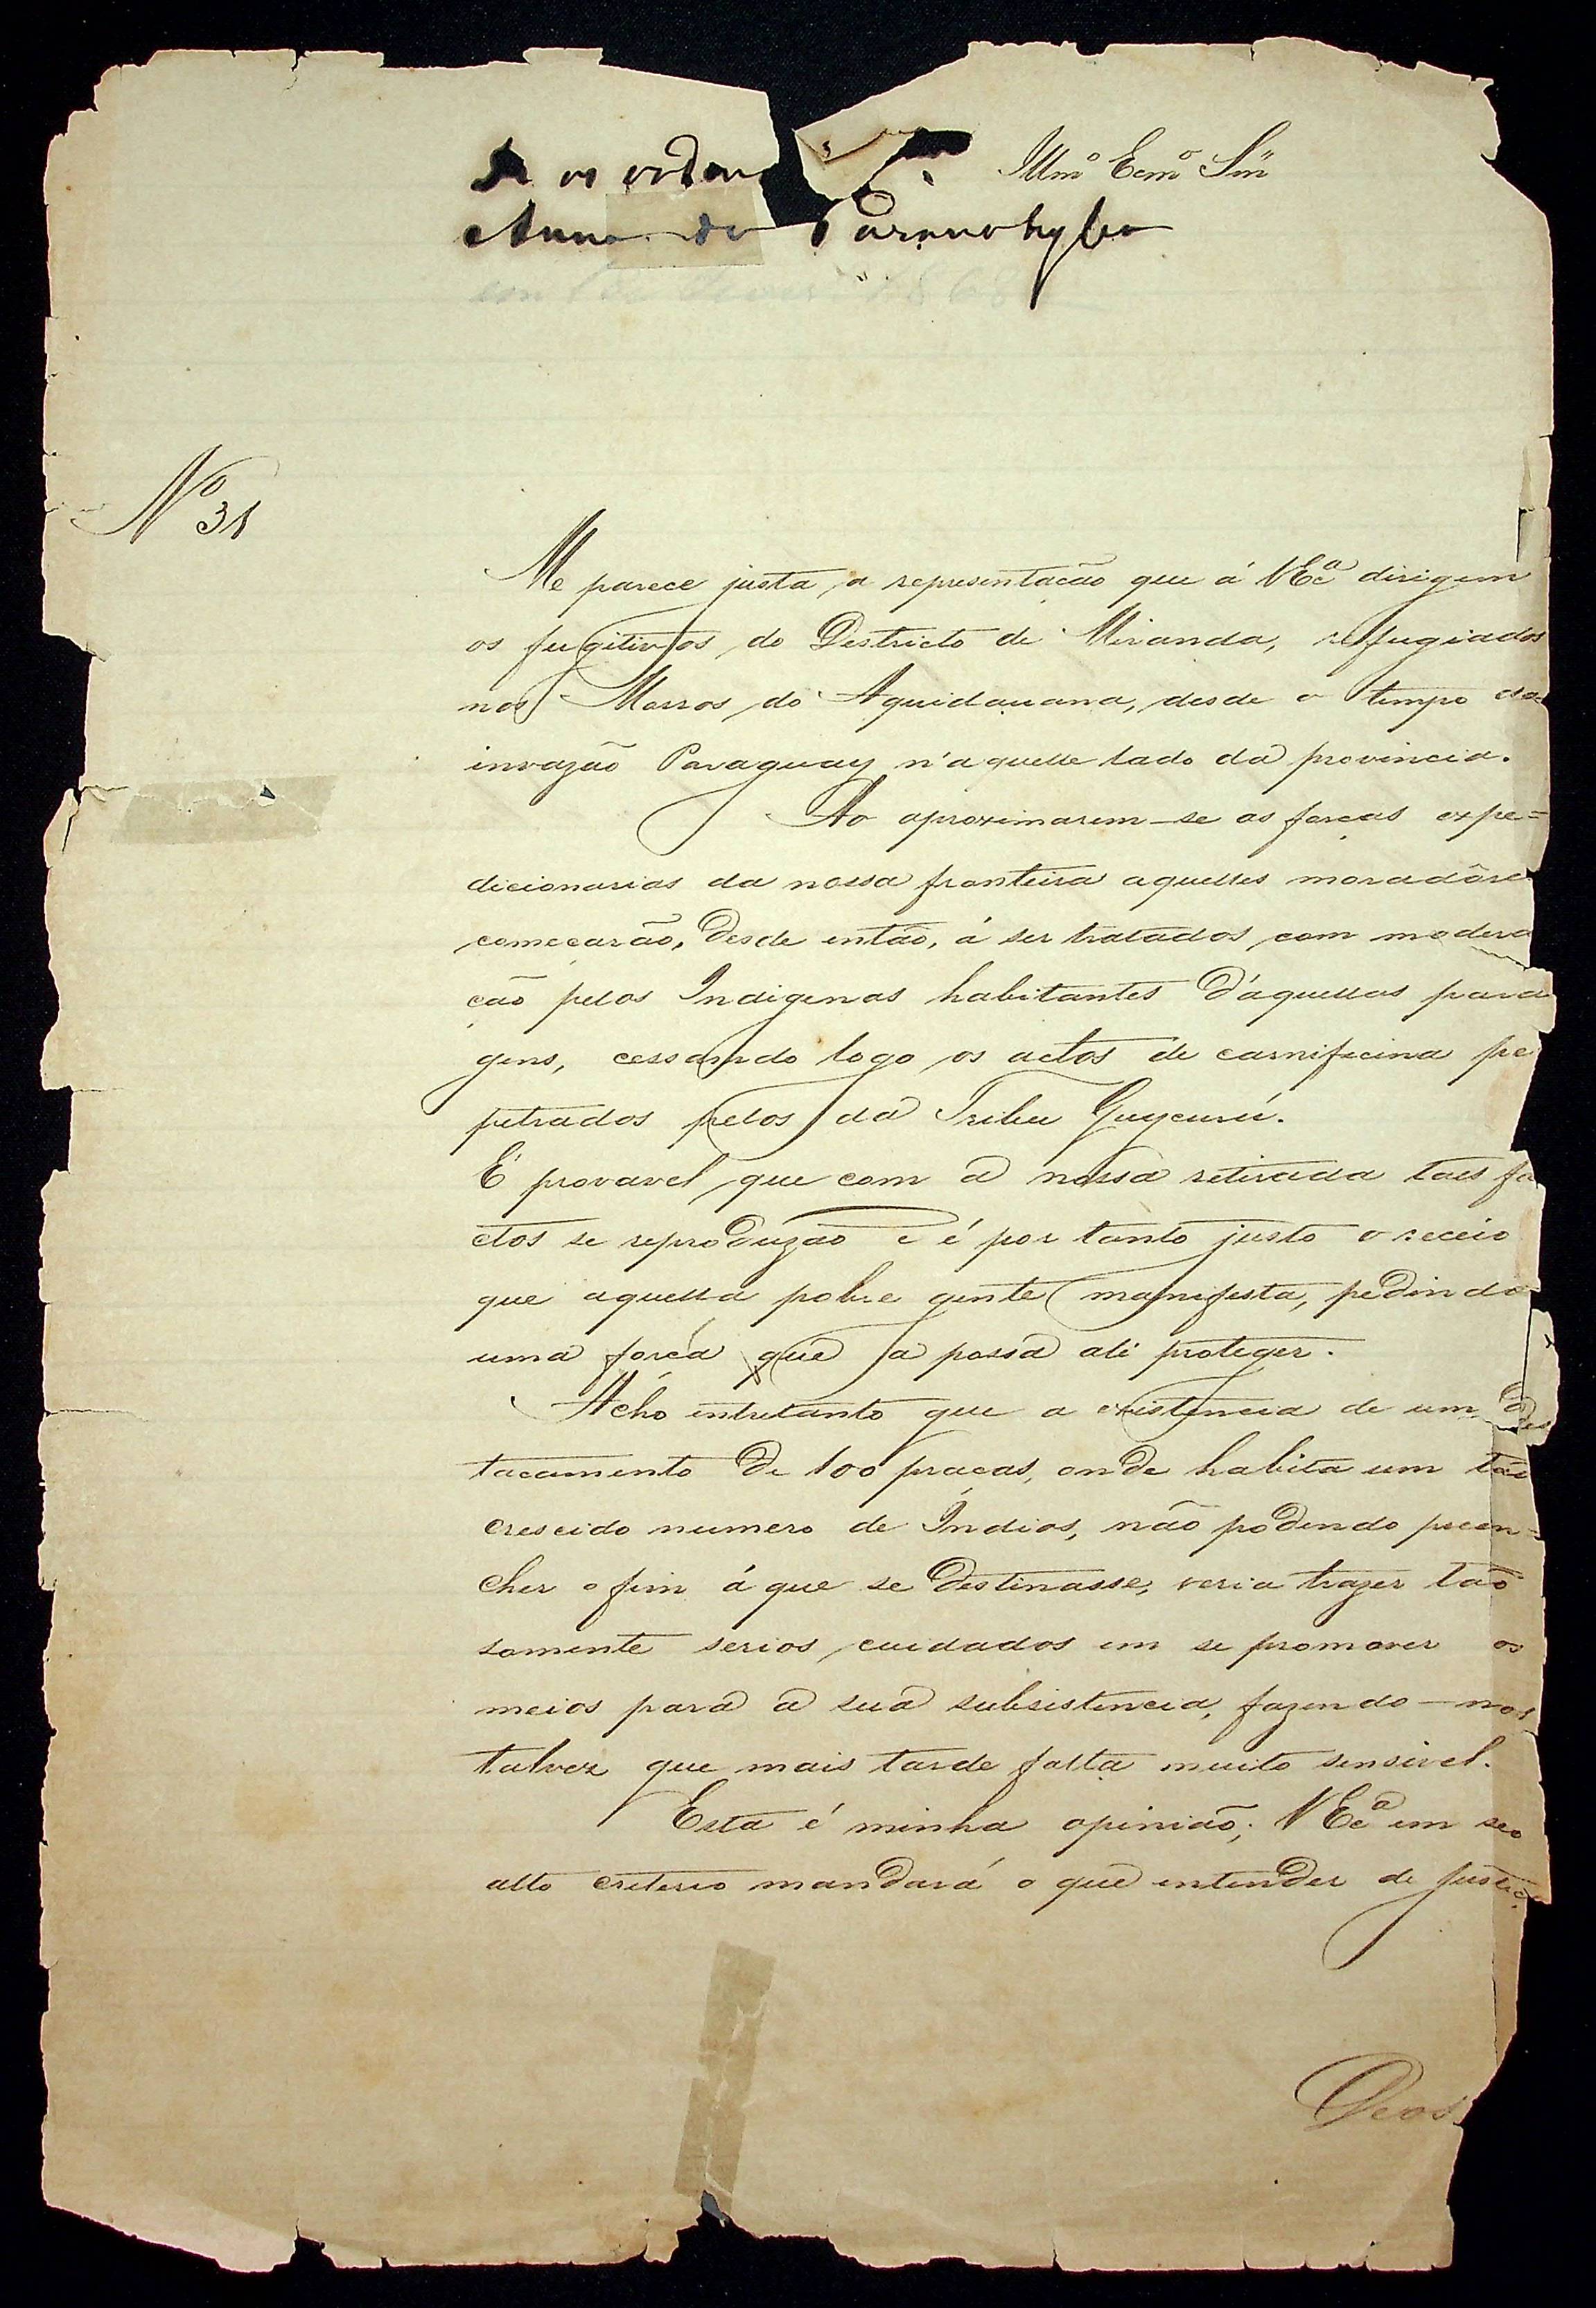 Illmº Exmº Snr
Paranahyba
Nº 31
Me parece justa a representação que á VEcª dirigem
os fugitivos do Districto de Miranda, refugiados
nos Morros do Aquidauana, desde o tempo da
invazão Paraguay n'aquelle lado da provincia.
Ao aproximarem-se as forças expe=
dicionarias da nossa fronteira aquelles moradôre
começarão, desde então, á ser tratados com modera
ção pelos Indigenas habitantes d'aquellas para
gens, cessando logo os actos de carnificina pe
petrados pelos da Tribu Guycurú.
É provavel que com a nossa retirada taes fa
ctos se reproduzão e é por tanto justo o receio
que aquella pobre gente manifesta, pedindo
uma força que a possa ali proteger.
Acho entretanto que a existencia de um des
tacamento de 100 praças, onde habita um tão
crescido numero de Índios, não podendo preen=
cher o fim á que se destinasse, veria trazer tão
somente serios cuidados em se promover os
meios para a sua subsistencia, fazendo-nos
talvez que mais tarde falta muito sensivel.
Esta é minha opinião; VEcª em seo
alto criterio mandará o que entender de Justiç.
Deos